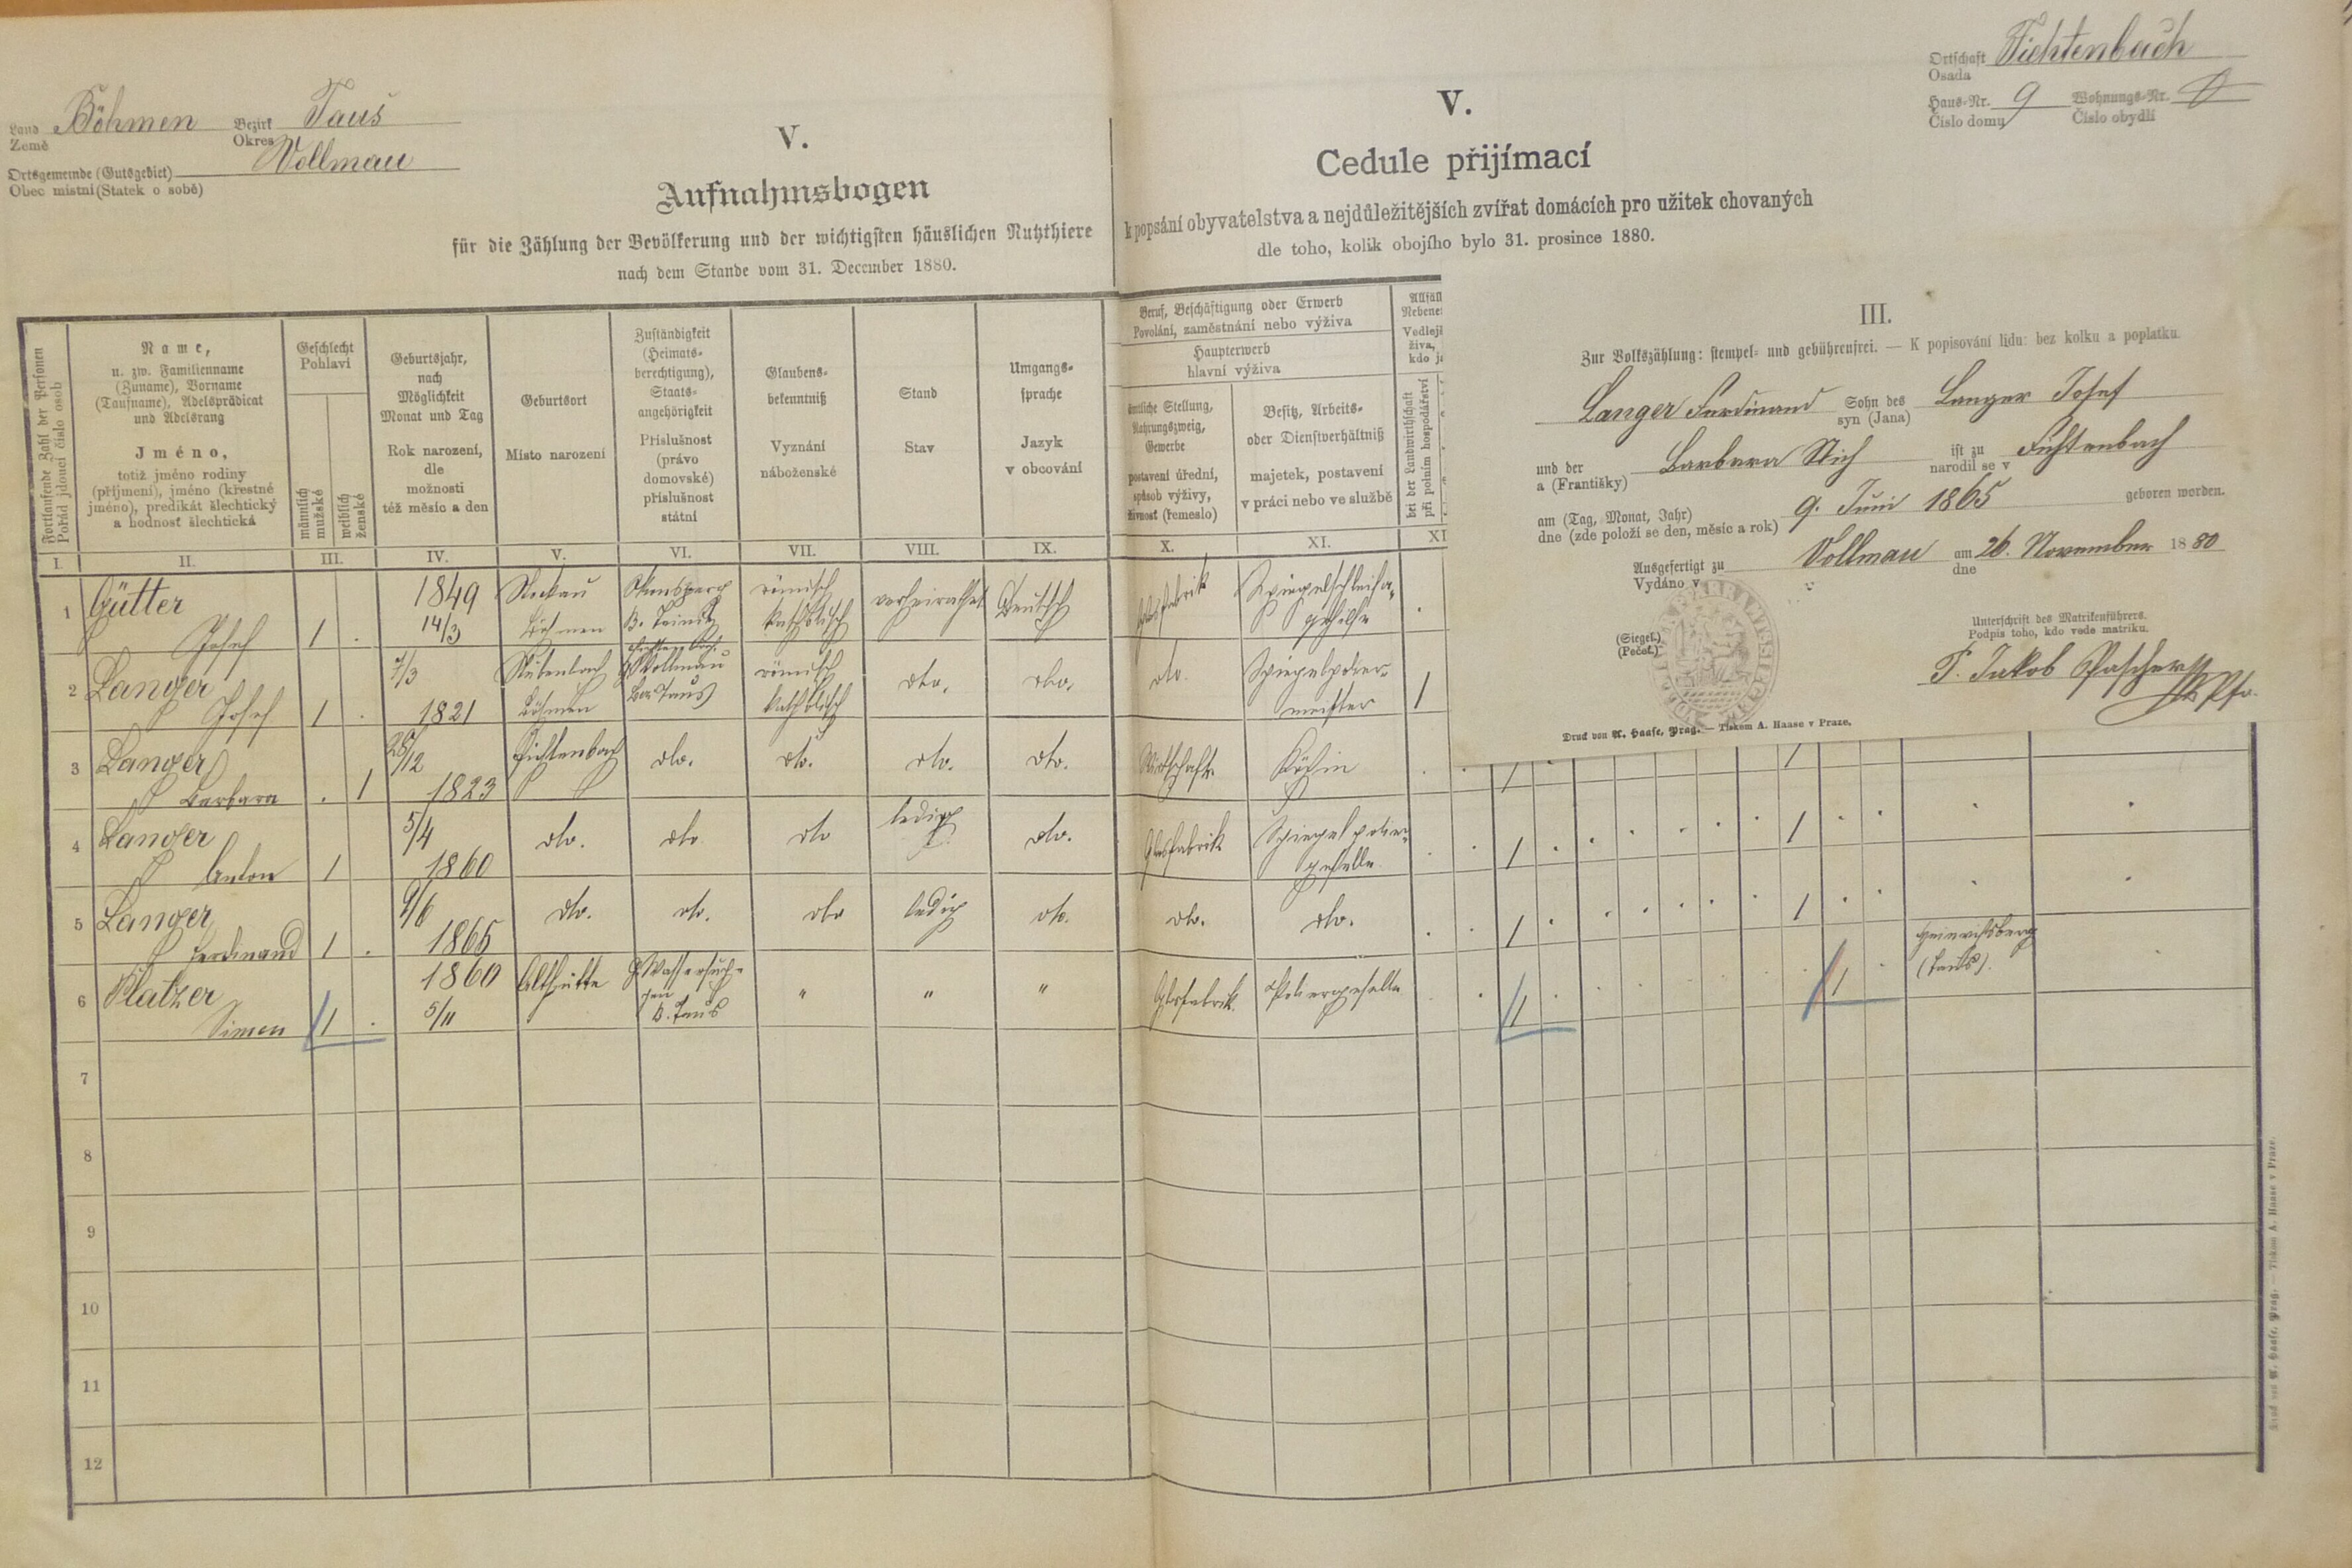 Land Böhmen Bezirk Taus
Země Okres
Ortsgemeinde (Gutsgebiet) Vollmau
Obec místní (Statek o sobě)
V.
Aufnahmsbogen
für die Zählung der Bevölkerung und der wichtigsten häuslichen Nutzthiere
nach dem Stande vom 31. December 1880.
Ortschaft Fichtenbach
Osada
Haus-Nr. 9 Wohnungs-Nr.
Číslo domu Číslo obydlí
V.
Cedule přijímací
k popsání obyvatelstva a nejdůležitějších zvířat domácích pro užitek chovaných
dle toho, kolik obojího bylo 31. prosince 1880.
Fortlaufende Zahl der Personen
Pořád jdoucí číslo osob
Name,
u. zw. Familienname
(Zuname), Vorname
(Taufname), Adelsprädicat
und Adelsrang
Jméno,
totiž jméno rodiny
(příjmení), jméno (křestné
jméno), predikát šlechtický
a hodnosť šlechtická
Geschlecht
Pohlaví
männlich
mužské
weiblich
ženské
Geburtsjahr,
nach
Möglichkeit
Monat und Tag
Rok narození,
dle
možnosti
též měsíc a den
Geburtsort
Místo narození
Zuständigkeit
(Heimats-
berechtigung),
Staats-
angehörigkeit
Příslušnost
(právo
domovské)
příslušnost
státní
Glaubens-
bekenntniß
Vyznání
náboženské
Stand
Stav
Umgangs-
sprache
Jazyk
v obcování
Beruf, Beschäftigung oder Erwerb
Povolání, zaměstnání nebo výživa
Haupterwerb
hlavní výživa
amtliche Stellung,
Nahrungszweig,
Gewerbe
postavení úřední,
spůsob výživy,
živnosť (řemeslo)
Besitz, Arbeits-
oder Dienstverhältniß
majetek, postavení
v práci nebo ve službě
Vedlejš
živa,
bei der Landwirthschaft
při polním hospodářství
I. II. III. IV. V. VI. VII. VIII. IX. X. XI. XI
1 Gütter 1849 römisch verheirathet Deutsch
Josef 1 . 14/3 Böhmen katholisch
2 Langer 7/3 Vollmau römisch dto. dto. dto. Spiegelpolier-
Josef 1 . 1821 Böhmen Bez Taus katholisch meister 1
3 Langer 25/12 Fichtenbach dto. dto. dto. dto. Wirthschaft. Köchin
Barbara . 1 1823
4 Langer 5/4 dto. dto dto ledig dto. Glasfabrik Spiegelpolier-
Anton 1 1860 geselle
5 Langer 9/6 dto. dto. dto ledig dto. dto. dto.
Ferdinand 1 . 1865
6 Platzer 1860 Althütte " " " Glasfabrik. Poliergeselle Heinrichsberg
Simon 1 . 5/11 B. Taus (Taus).
7
8
9
10
11
12
III.
Zur Volkszählung: stempel- und gebührenfrei. — K popisování lidu: bez kolku a poplatku.
Langer Ferdinand Sohn des Langer Josef
syn (Jana)
und der Barbara Stich ist zu Fichtenbach
a (Františky) narodil se v
am (Tag, Monat, Jahr) 9. Juni 1865 geboren worden.
dne (zde položí se den, měsíc a rok)
Ausgefertigt zu Vollmau am 26. November 1880
Vydáno v dne
(Siegel.)
(Pečeť.)
Unterschrift des Matrikenführers.
Podpis toho, kdo vede matriku.
P. Jakob
Druck von A. Haase, Prag. — Tiskem A. Haase v Praze.
Druck von A. Haase, Prag. — Tiskem A. Haase v Praze.